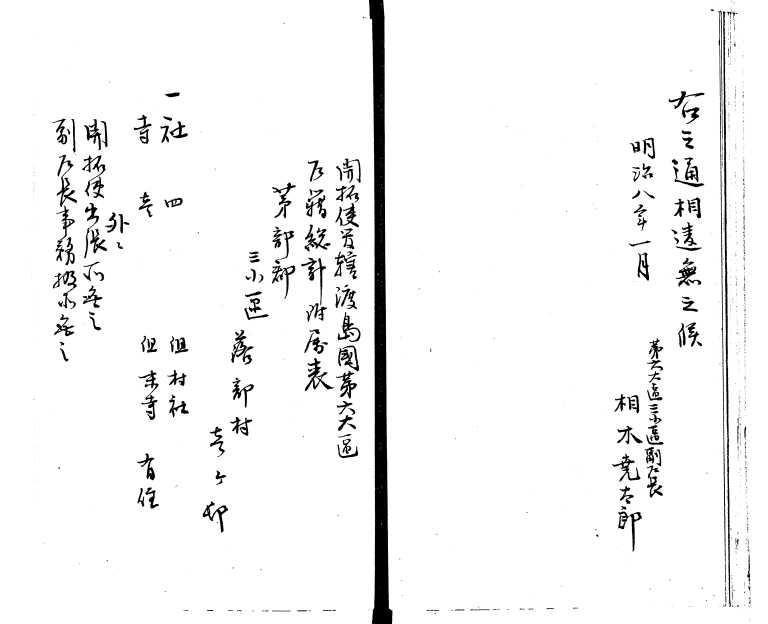 右之通相違無之候
明治八年一月
第六大區三小區副戸長
相木堯太郎
開拓使管轄渡島國第六大區
戸籍総計附属表
茅部郡
三小區
落部村
壱ヶ邨
一社 四 但村社
寺 壱 但末寺 有住
外ニ
開拓使出張所無之
副戸長事務扱所無之